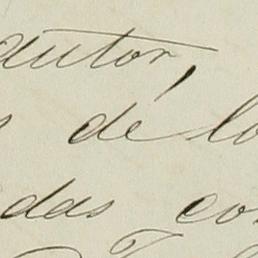 autor,
de lo
das co